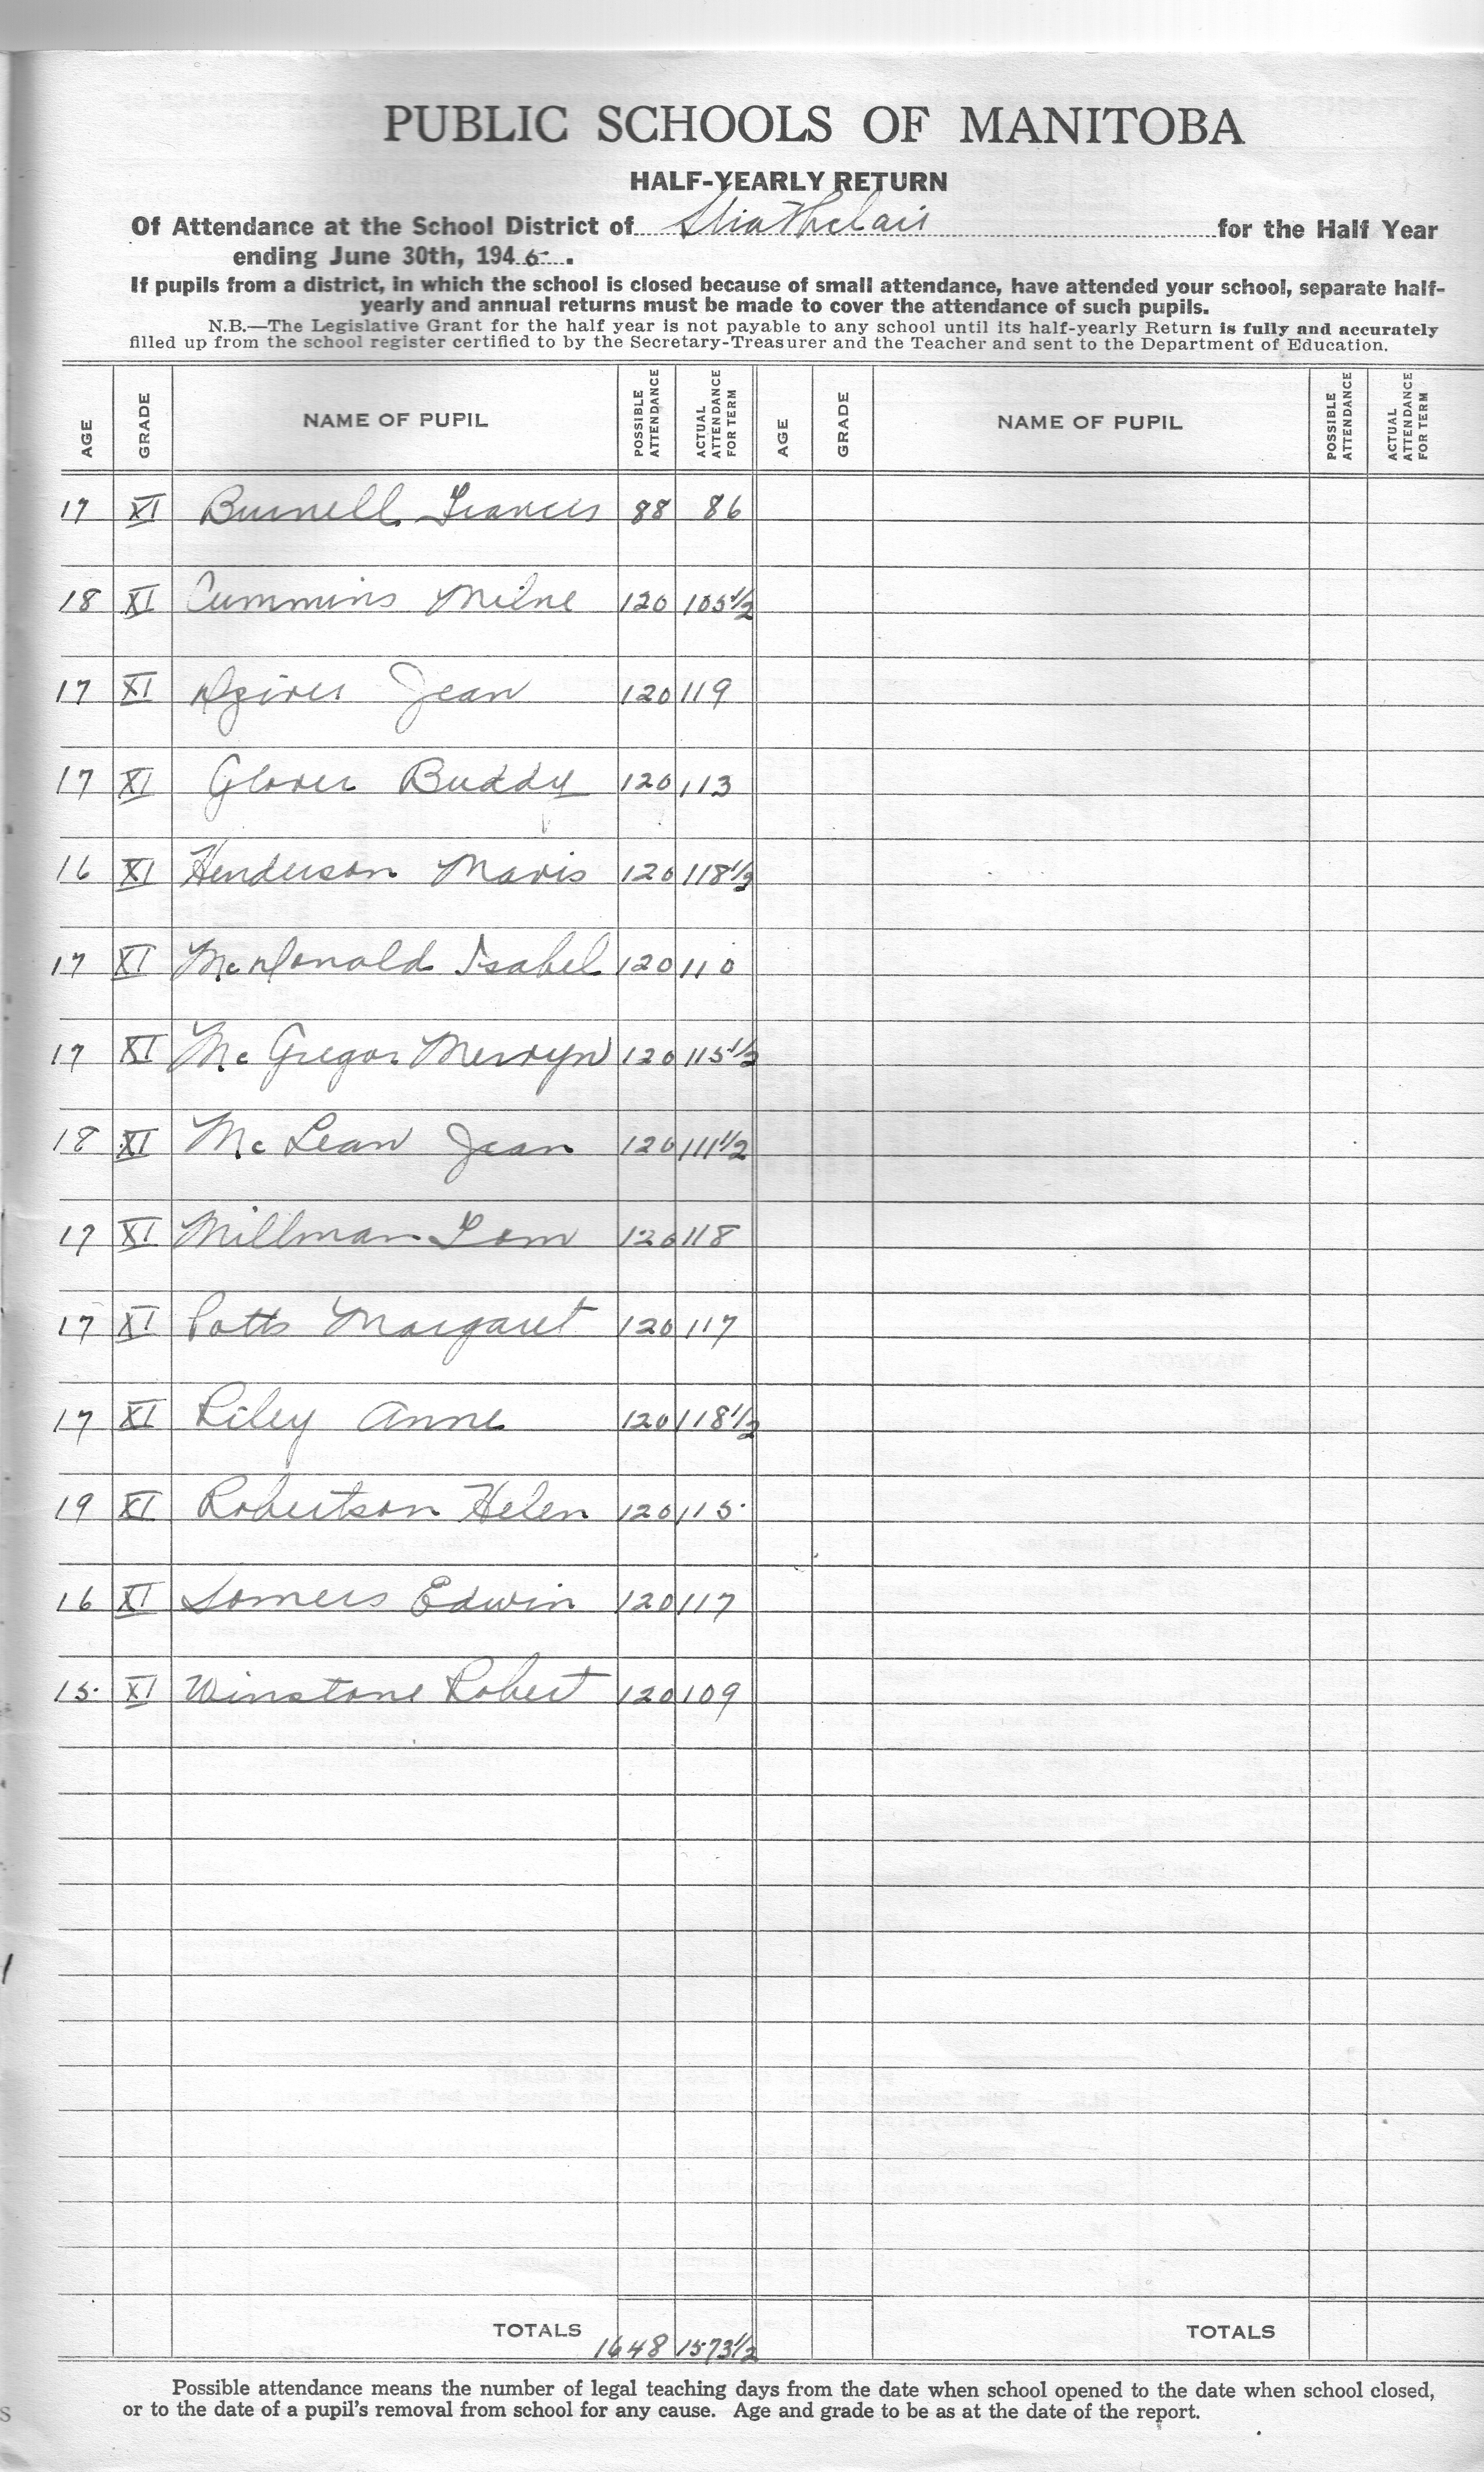 PUBLIC SCHOOLS OF MANITOBA
HALF-YEARLY RETURN
Of Attendance at the School District of Strathclair for the Half Year
ending June 30th, 194
If pupils from a district, in which the school is closed because of small attendance, have attended your school, separate half-
yearly and annual returns must be made to cover the attendance of such pupils.
N.B.—The Legislative Grant for the half year is not payable to any school until its half-yearly Return is fully and accurately
filled up from the school register certified to by the Secretary-Treasurer and the Teacher and sent to the Department of Education.
AGE GRADE NAME OF PUPIL POSSIBLE ATTENDANCE ACTUAL ATTENDANCE FOR TERM AGE GRADE NAME OF PUPIL POSSIBLE ATTENDANCE ACTUAL ATTENDANCE FOR TERM
17 XI Burnell Frances 88 86
18 XI Cummins Milne 120 105 1/2
17 XI Jean 120 119
17 XI Glover Buddy 120 113
16 XI Henderson Mavis 120 118 1/2
17 XI McDonald Isabel 120 110
17 XI McGregor Mervyn 120 115 1/2
18 XI McLean Jean 120 111 1/2
17 XI Millman Tom 120 118
17 XI Potts Margaret 120 117
17 XI Riley Anne 120 118 1/2
19 XI Robertson Helen 120 115
16 XI Somers Edwin 120 117
15 XI Winstone Robert 120 109
TOTALS 1648 1573 1/2 TOTALS
Possible attendance means the number of legal teaching days from the date when school opened to the date when school closed,
or to the date of a pupil's removal from school for any cause. Age and grade to be as at the date of the report.